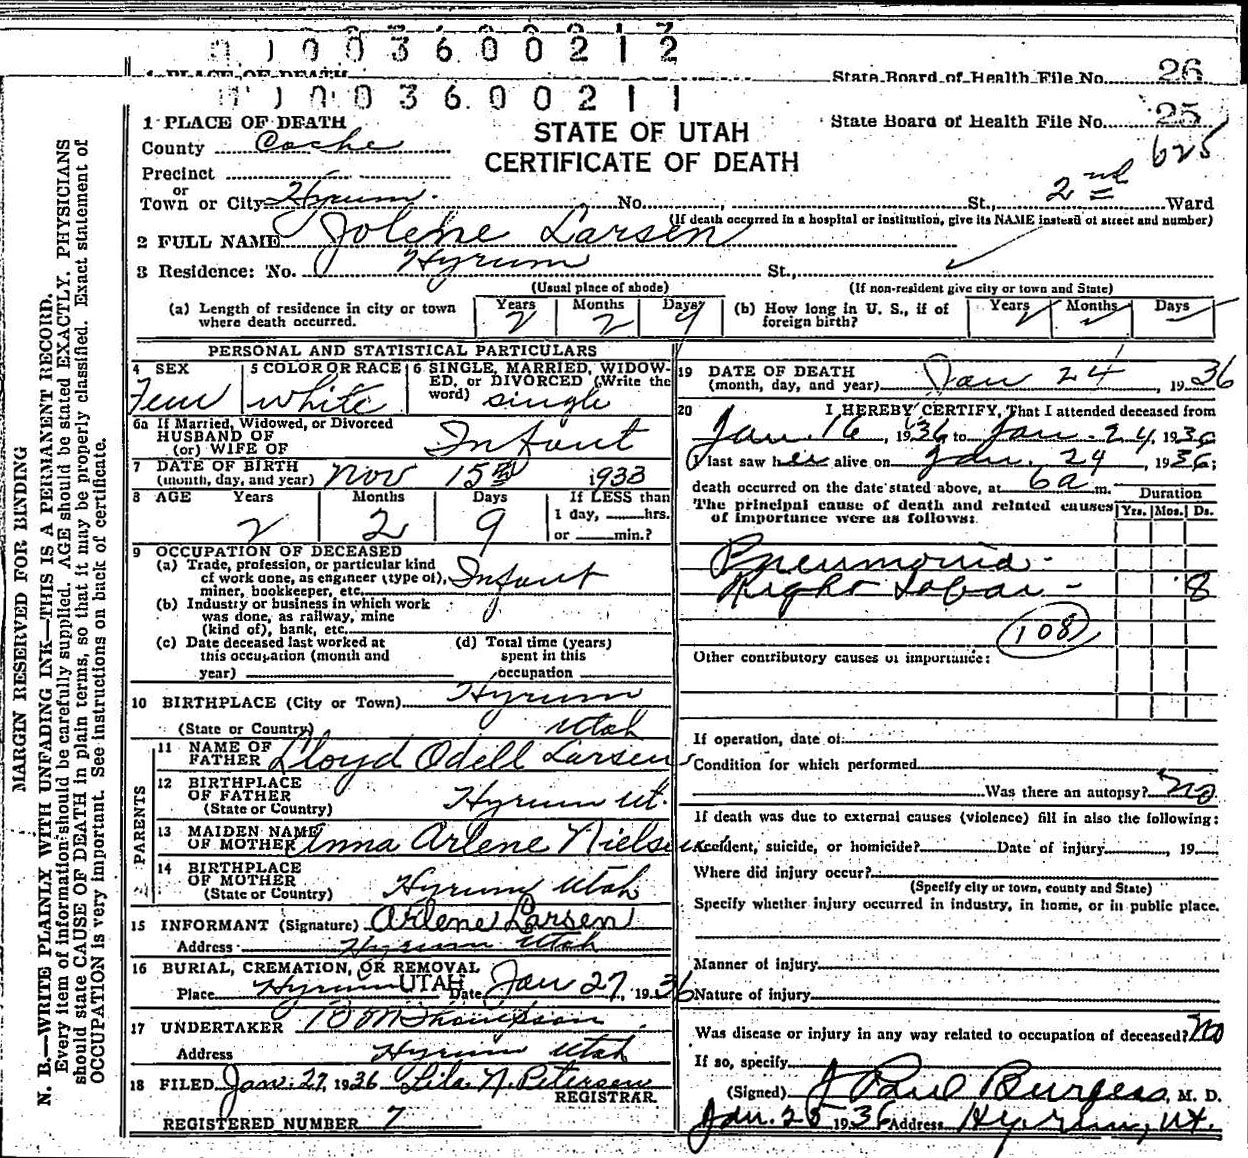 01003600212
1 PLACE OF DEATH State Board of Health File No. 26
01003600211
1 PLACE OF DEATH
State Board of Health File No. 25
STATE OF UTAH
CERTIFICATE OF DEATH
625
County Cache
Precinct
or
Town or City Hyrum No. St., 2nd Ward
(If death occurred in a hospital or institution, give its NAME instead of street and number)
2 FULL NAME Jolene Larsen
3 Residence: No. Hyrum St.,
(Usual place of abode) (If non-resident give city or town and State)
(a) Length of residence in city or town where death occurred. Years 2 Months 2 Days 9
(b) How long in U. S., if of foreign birth? Years Months Days
PERSONAL AND STATISTICAL PARTICULARS
4 SEX Fem
5 COLOR OR RACE white
6 SINGLE, MARRIED, WIDOWED, or DIVORCED (Write the word) single
6a If Married, Widowed, or Divorced
HUSBAND OF
(or) WIFE OF Infant
7 DATE OF BIRTH
(month, day, and year) Nov 15th 1933
8 AGE Years 2 Months 2 Days 9 If LESS than 1 day, hrs. or min.?
9 OCCUPATION OF DECEASED
(a) Trade, profession, or particular kind
of work done, as engineer (type of),
miner, bookkeeper, etc. Infant
(b) Industry or business in which work
was done, as railway, mine
(kind of), bank, etc.
(c) Date deceased last worked at
this occupation (month and
year)
(d) Total time (years)
spent in this
occupation
10 BIRTHPLACE (City or Town) Hyrum
(State or Country) Utah
PARENTS
11 NAME OF FATHER Lloyd Odell Larsen
12 BIRTHPLACE OF FATHER
(State or Country) Hyrum Ut.
13 MAIDEN NAME OF MOTHER Anna Arlene Nielsen
14 BIRTHPLACE OF MOTHER
(State or Country) Hyrum Utah
15 INFORMANT (Signature) Arlene Larsen
Address Hyrum Utah
16 BURIAL, CREMATION, OR REMOVAL
Place Hyrum UTAH Date Jan 27, 1936
17 UNDERTAKER B M Thompson
Address Hyrum Utah
18 FILED Jan. 27, 1936 Lila N. Petersen
REGISTRAR
REGISTERED NUMBER 7
19 DATE OF DEATH
(month, day, and year) Jan 24, 1936
20 I HEREBY CERTIFY, That I attended deceased from
Jan. 16, 1936 to Jan. 24, 1936
I last saw her alive on Jan. 24, 1936;
death occurred on the date stated above, at 6a m.
The principal cause of death and related causes
of importance were as follows:
Duration
Yrs. Mos. Ds.
Pneumonia -
Right Lobar - 8
108
Other contributory causes of importance:
If operation, date of:
Condition for which performed
Was there an autopsy? no
If death was due to external causes (violence) fill in also the following:
Accident, suicide, or homicide? Date of injury , 19
Where did injury occur?
(Specify city or town, county and State)
Specify whether injury occurred in industry, in home, or in public place.
Manner of injury
Nature of injury
Was disease or injury in any way related to occupation of deceased? no
If so, specify
(Signed) J Paul Burgess, M. D.
Jan. 25 1936 Address Hyrum, Ut.
MARGIN RESERVED FOR BINDING
N. B.—WRITE PLAINLY WITH UNFADING INK—THIS IS A PERMANENT RECORD.
Every item of information should be carefully supplied. AGE should be stated EXACTLY. PHYSICIANS
should state CAUSE OF DEATH in plain terms, so that it may be properly classified. Exact statement of
OCCUPATION is very important. See instructions on back of certificate.